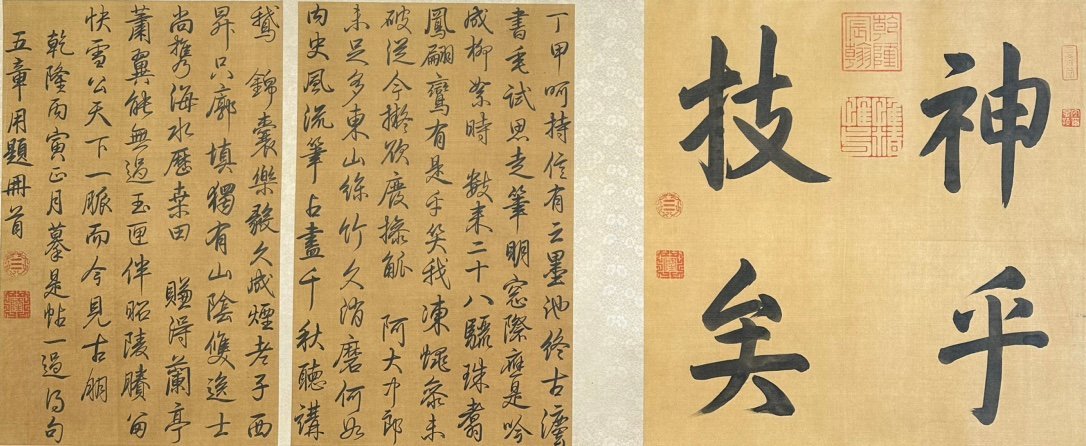 神乎
技矣
乾隆宸翰
惟精惟一
丁甲呵持信有之墨池終古
試思走筆明窗際應是吟
成柳絮時 數來二十八驪珠翥
鳳翩鸞有是乎笑我凍蠅參未
破從今擬欲廢操觚 阿大中郎
未足多東山絲竹久消磨何如
內史風流筆占盡千秋聽講
鵝 錦囊樂毅久成煙老子西
昇只廓填獨有山陰雙逸士
尚攜海水歷桑田 賺得蘭亭
蕭翼能無過玉匣伴昭陵賸留
快雪公天下一脈而今見古朋
乾隆丙寅正月摹是帖一過得句
五章用題冊首